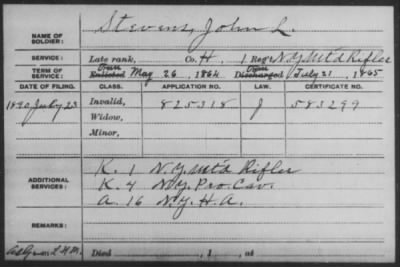 NAME OF SOLDIER: Stevens, John L.
SERVICE: Late rank, Co. H, 1 Reg't N.Y. Mt'd Rifles
TERM OF SERVICE: Enlisted May 26, 1864 Discharged July 21, 1865
DATE OF FILING. CLASS. APPLICATION NO. LAW. CERTIFICATE NO.
1890 July 23 Invalid, 825318 J 583299
Widow,
Minor,
K. 1 N.Y. Mt'd Rifles
ADDITIONAL SERVICES: K. 4 N.Y. Pro. Cav.
A. 16 N.Y. H.A.
REMARKS:
Died , 1 , at